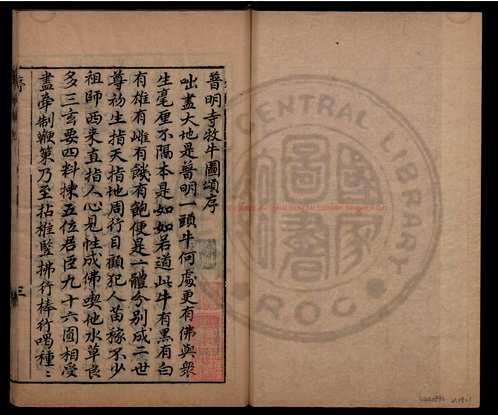 普明寺牧牛圖頌序
咄盡大地是普明一頭牛何處更有佛與衆
生毫厘不隔本是如如若道此牛有黑有白
有雄有雌有饑有飽便是一體分別成二世
尊初生指天指地周行目顧犯人苗稼不少
祖師西来直指人心見性成佛喫他水草良
多三玄要四料揀五位君臣九十六圓相受
盡牽制鞭策乃至拈椎竪拂行棒行喝種〻
序
三
CENTRAL LIBRARY
ROC
國家圖書館